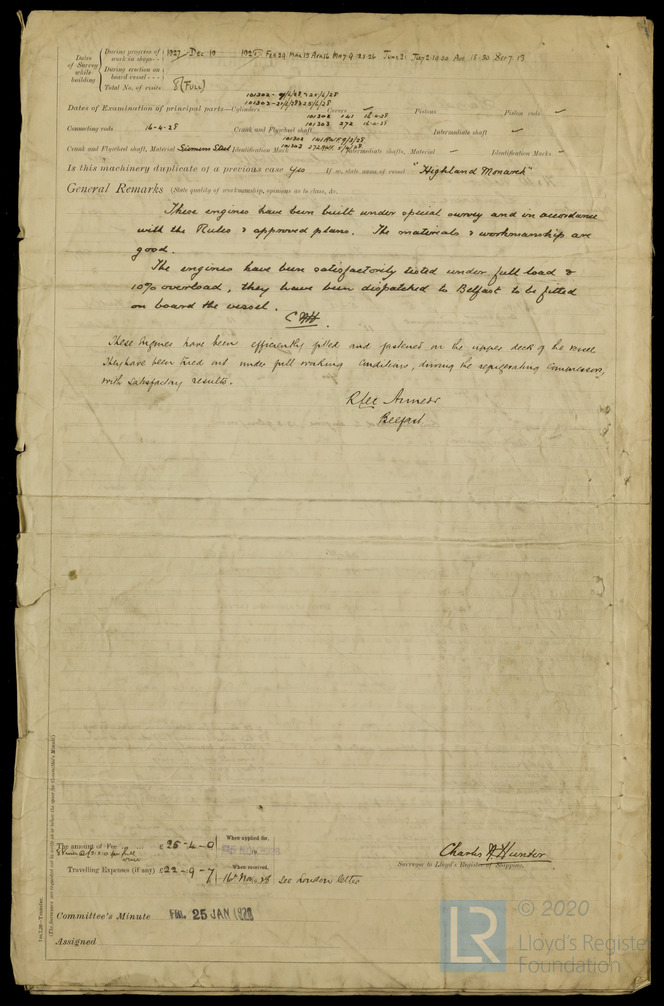 Dates of Survey while building
During progress of work in shops - - 1927 Dec 19 1928 Feb 29 Mar 19 Apr 16 May 9. 25. 26 June 21 July 2. 10. 20 Aug 15. 30 Sep 7 13
During erection on board vessel - - -
Total No. of visits 8 (Full)
Dates of Examination of principal parts—Cylinders Covers — Pistons — Piston rods —
101302 141 16-4-28
101303 272 16-4-28
Connecting rods 16-4-28 Crank and Flywheel shaft Intermediate shaft —
Crank and Flywheel shaft, Material Siemens Steel Identification Mark Intermediate shafts, Material — Identification Marks —
Is this machinery duplicate of a previous case Yes If so, state name of vessel "Highland Monarch"
General Remarks (State quality of workmanship, opinions as to class, &c.
These engines have been built under special survey and in accordance
with the Rules & approved plans. The materials & workmanship are
good.
The engines have been satisfactorily tested under full load &
10% overload, they have been dispatched to Belfast to be fitted
on board the vessel.
These Engines have been efficiently fitted and fastened on the upper deck of the vessel
They have been tried out under full working conditions, driving the refrigerating Compressors,
with satisfactory results.
R Lee Amess
Belfast
The amount of Fee .. £ 25-4-0 When applied for,
Travelling Expenses (if any) £ 22-9-7 When received,
16th Nov. 28 See London letter
Charles A. Hunter
Surveyor to Lloyd's Register of Shipping.
Committee's Minute FRI. 25 JAN 1929
Assigned
(The Surveyors are requested not to write on or below the space for Committee's Minute.)
LR
© 2020
Lloyd's Register
Foundation